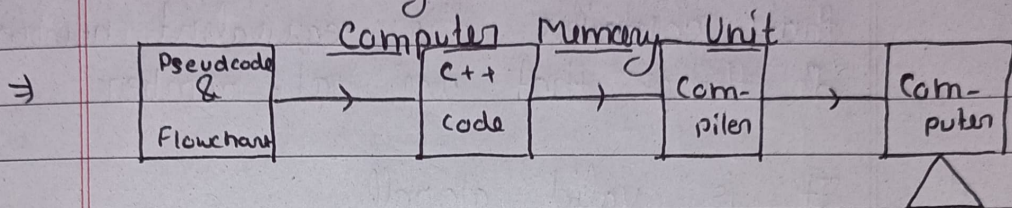 Computer Memory Unit
⇒ Pseudcode & Flowchart → C++ code → Com-piler → Com-puter